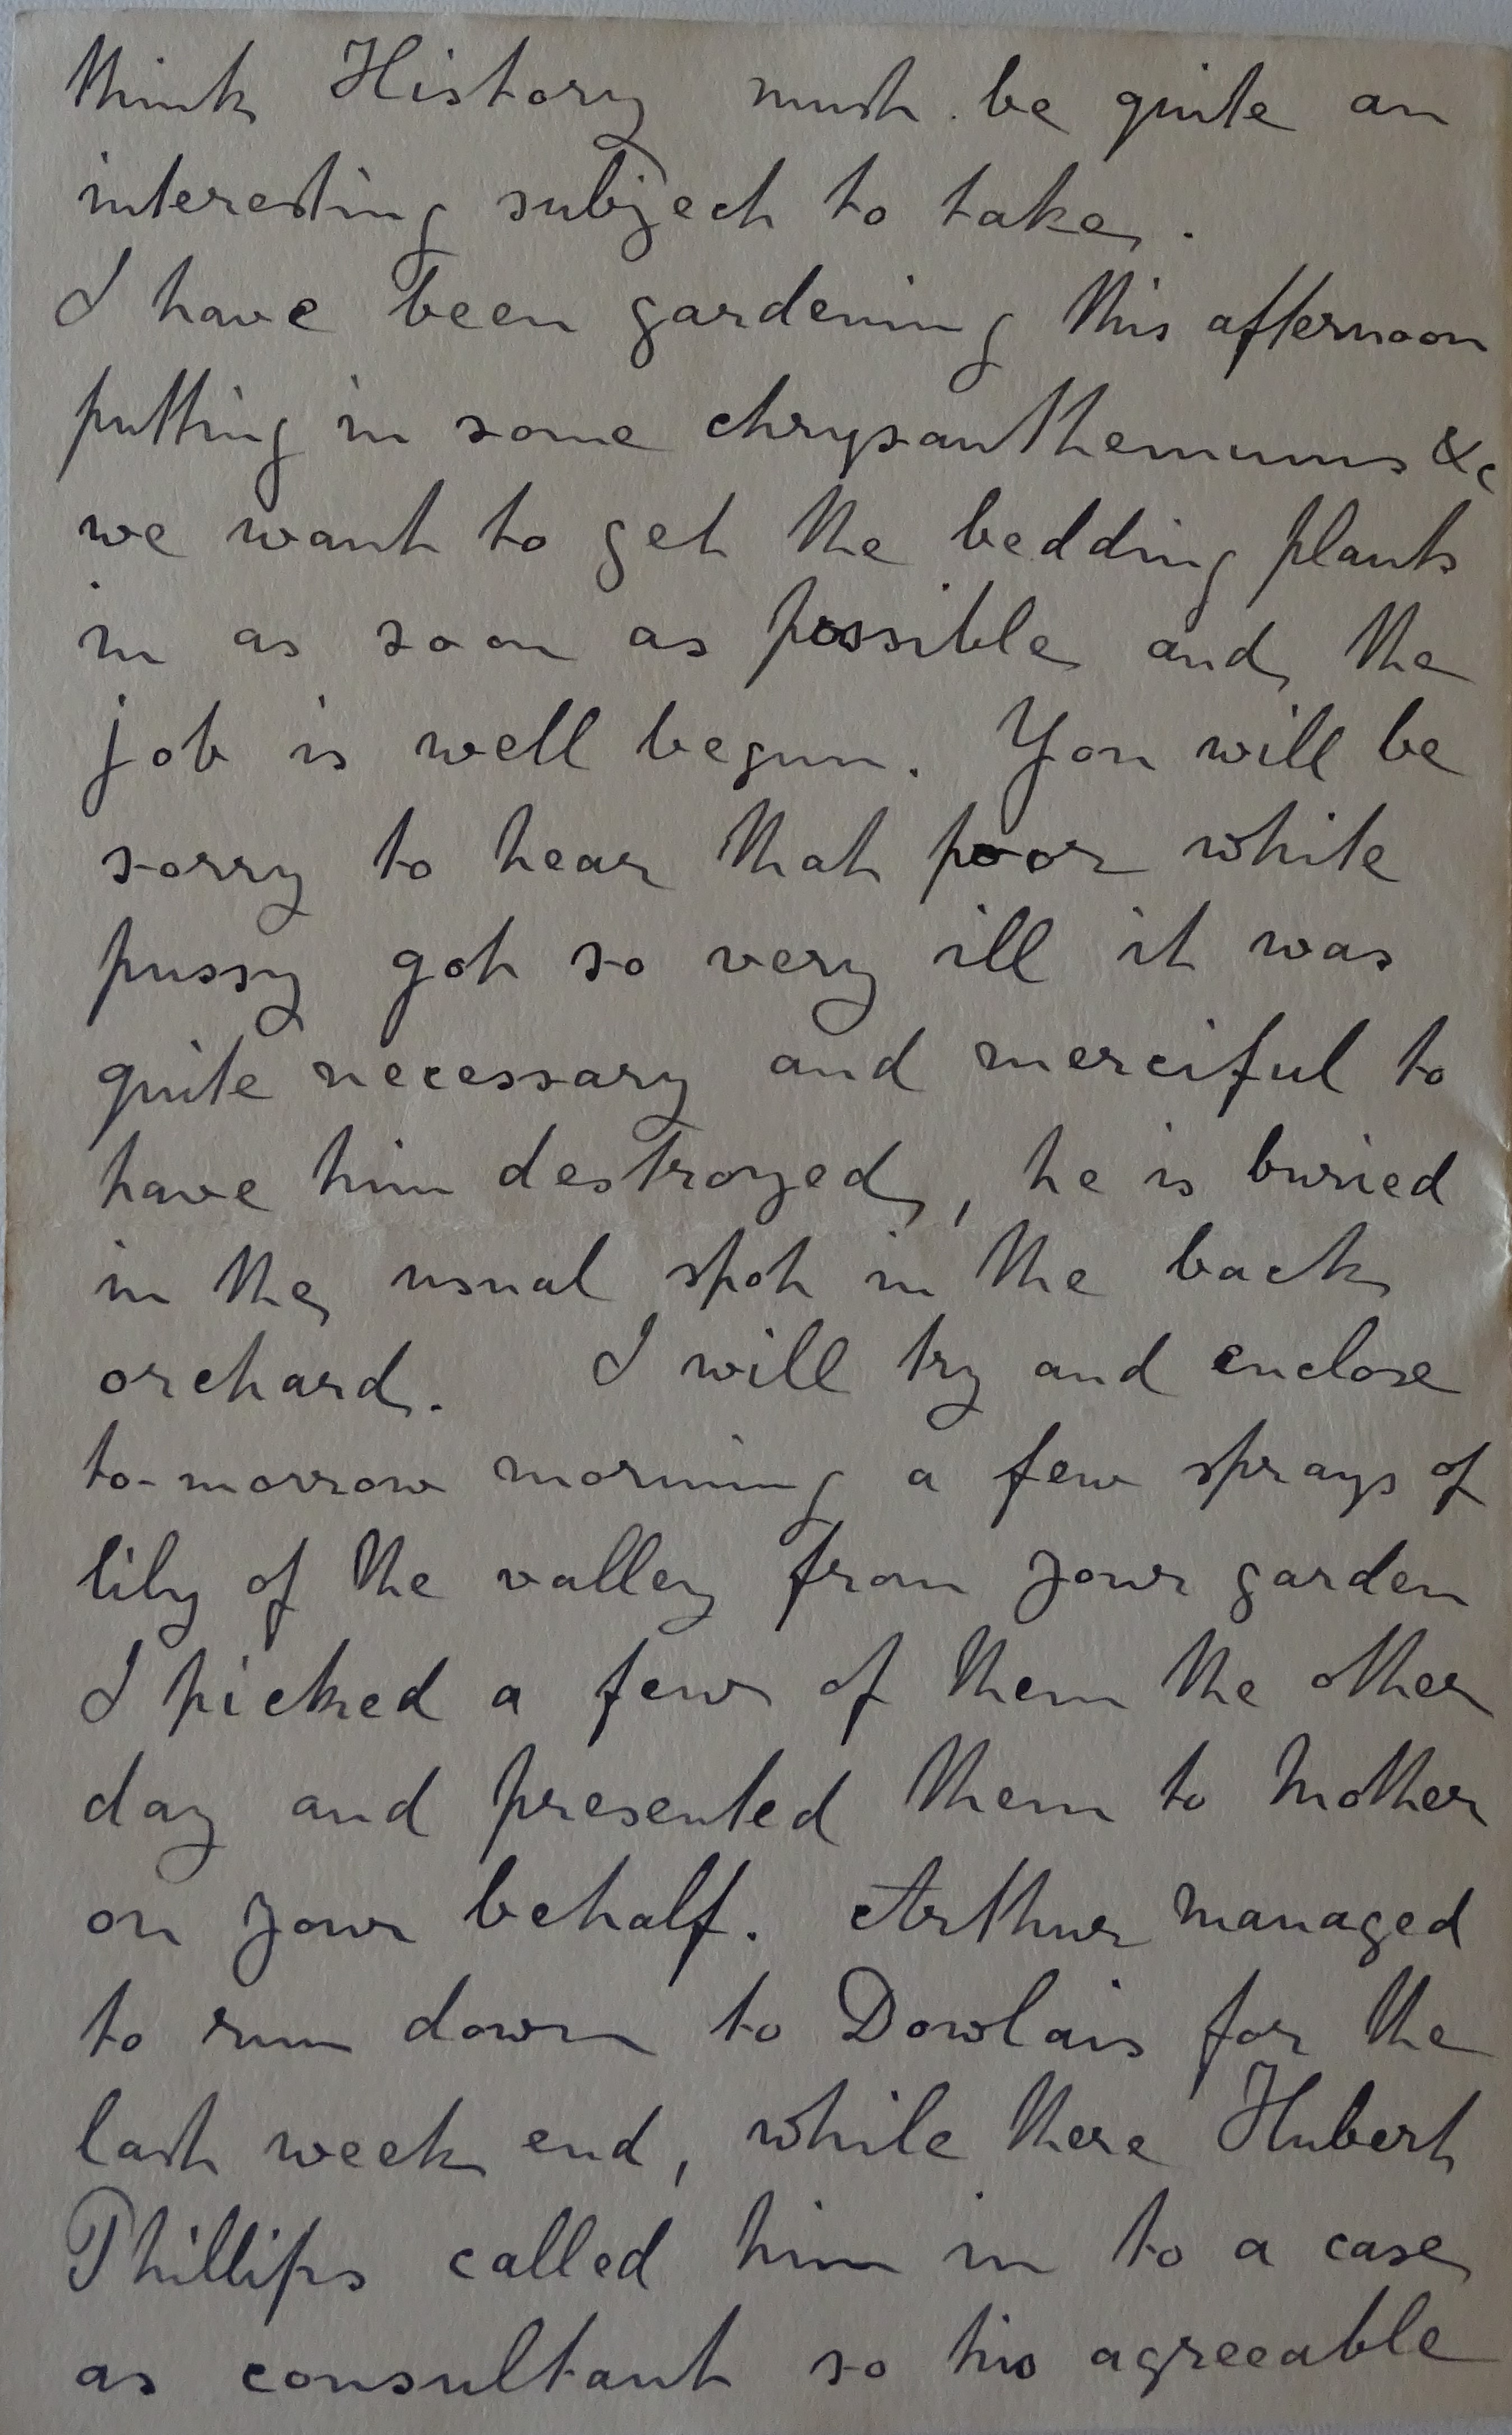 think History must be quite an
interesting subject to take.
I have been gardening this afternoon
putting in some chrysanthemums &c
we want to get the bedding plants
in as soon as possible and the
job is well begun. You will be
sorry to hear that poor white
pussy got so very ill it was
quite necessary and merciful to
have him destroyed, he is buried
in the usual spot in the back
orchard. I will try and enclose
to-morrow morning a few sprays of
lily of the valley from your garden
I picked a few of them the other
day and presented them to Mother
on your behalf. Arthur managed
to run down to Dowlais for the
last week end, while there Hubert
Phillips called him in to a case
as consultant so his agreeable